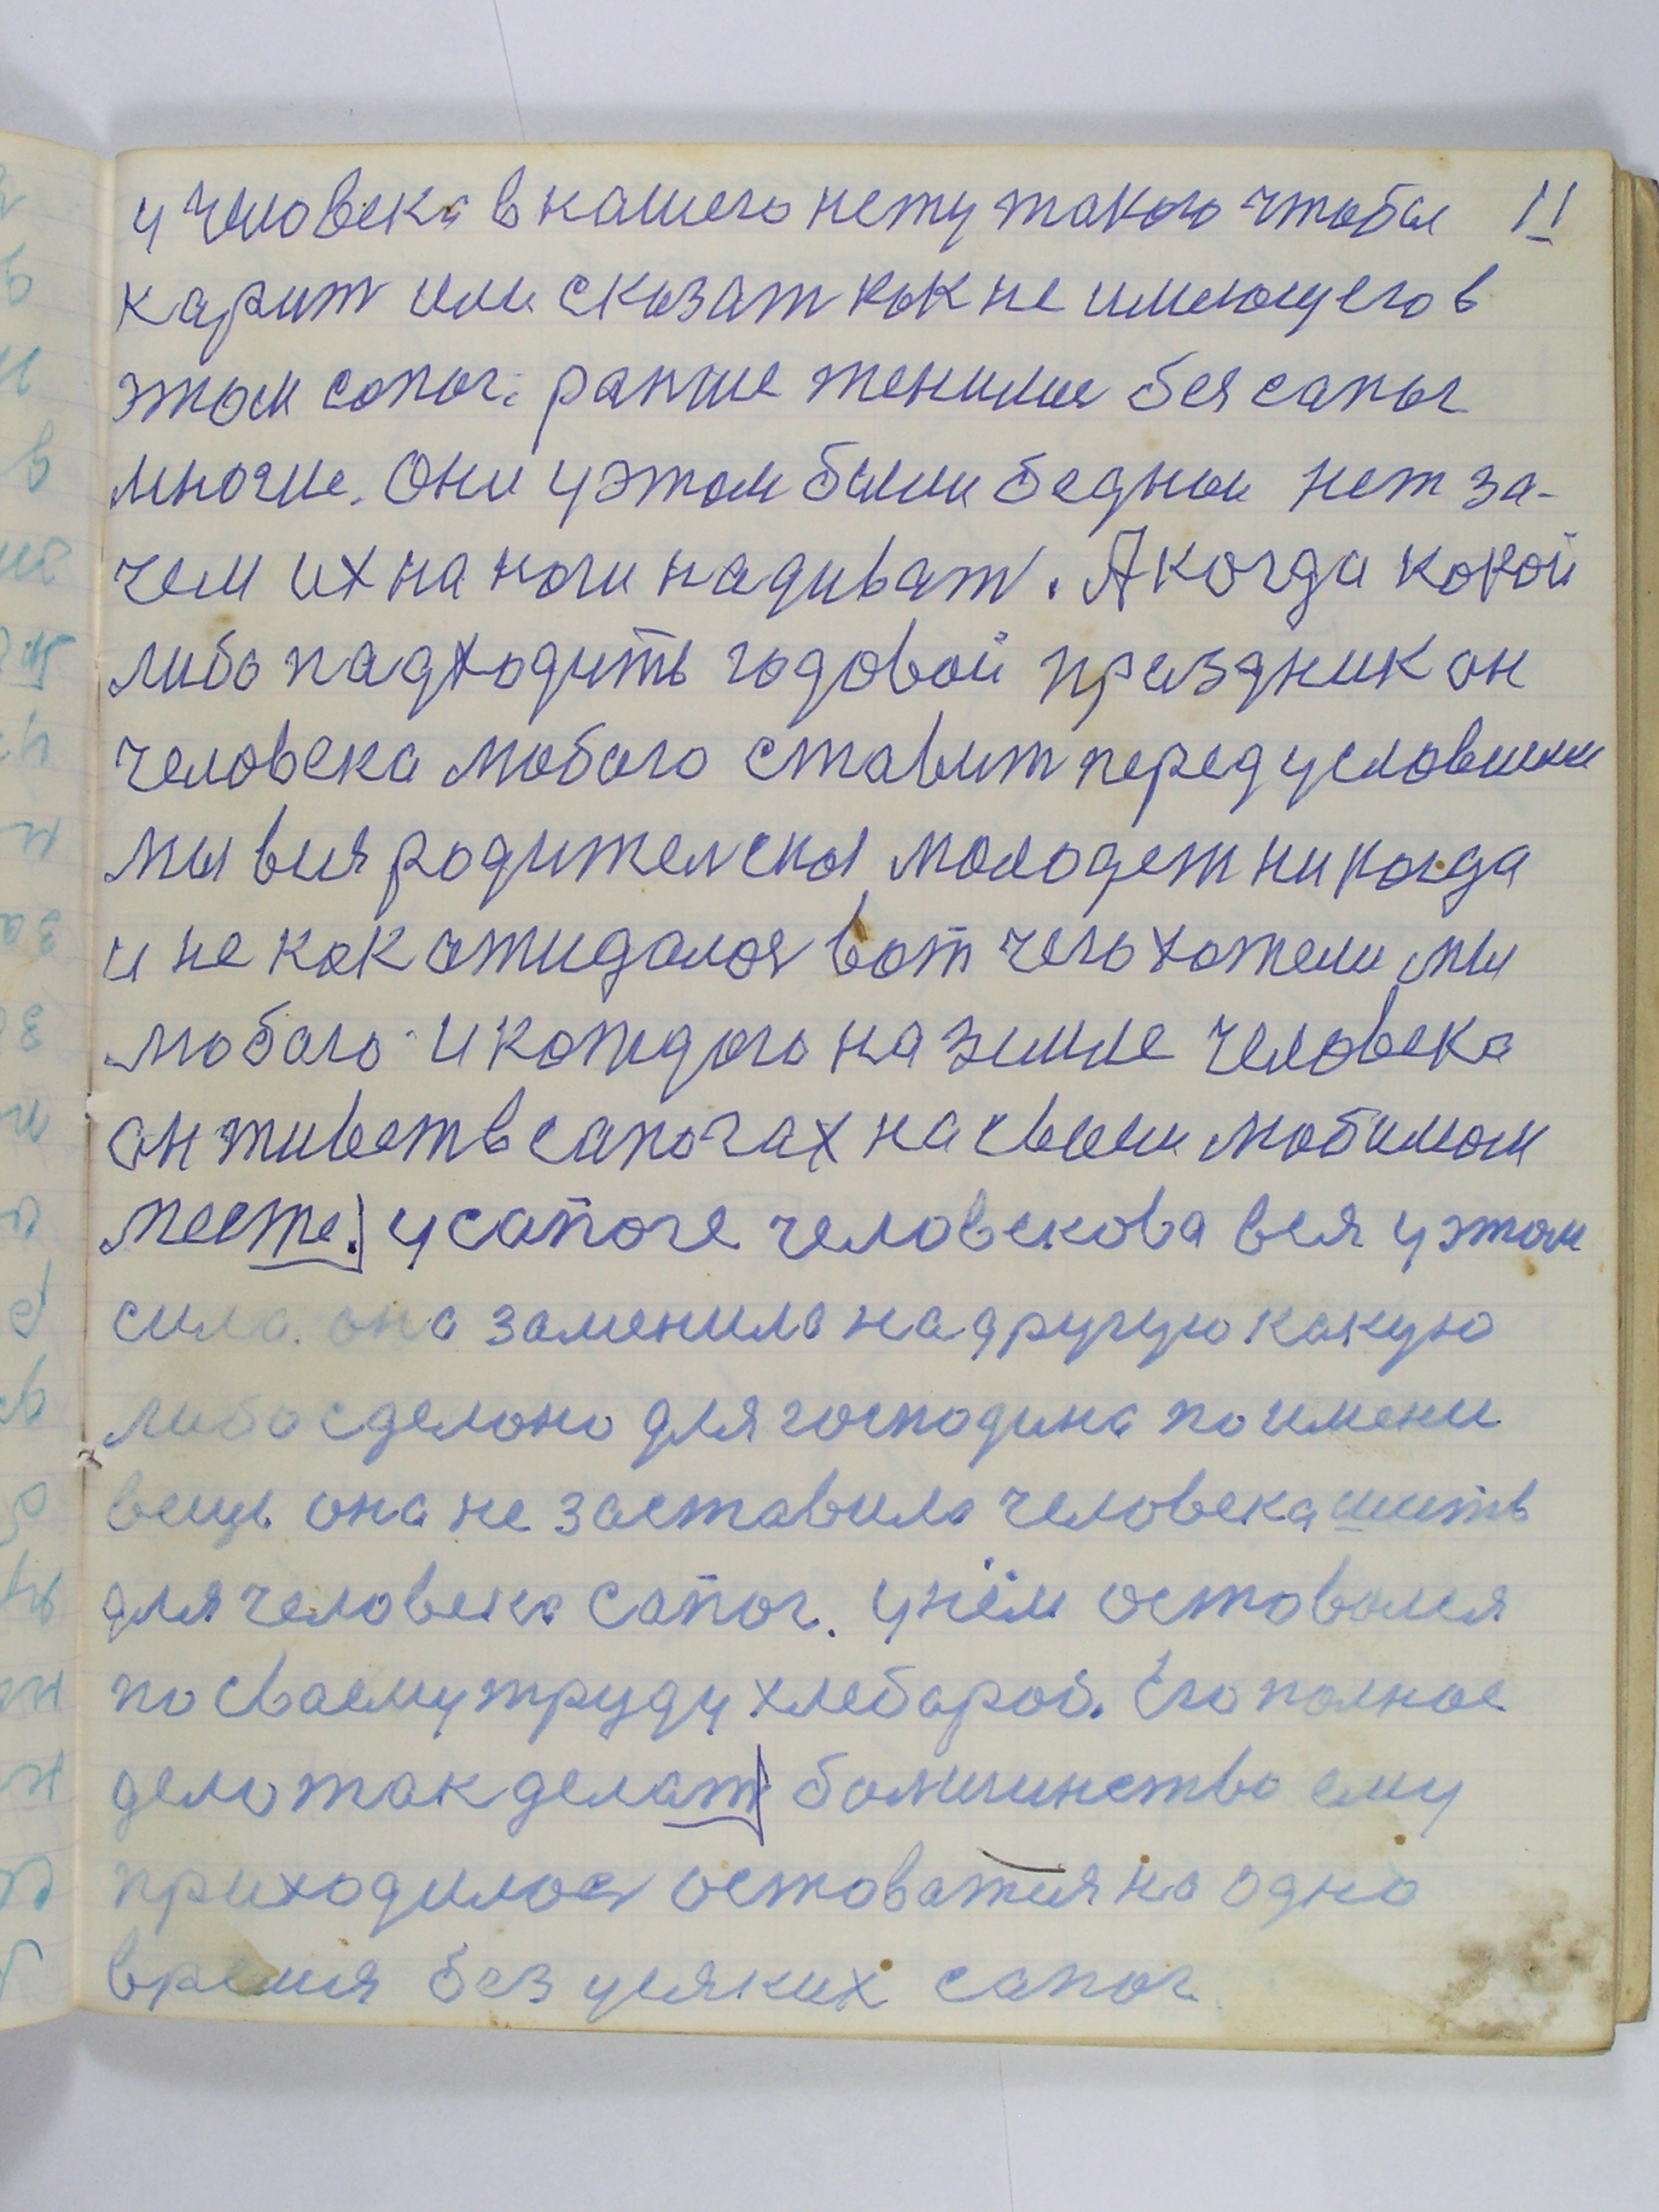 у человека в нашего нету такого чтобы 11
карит или сказат как не имеющего в
этом сапог. ранше женился бея сапог
многие. Они у этом были бедныи нет за-
чем их на ноги надиват. А когда кокой
либо падходить годовой праздник он
человека любого ставит перед условиеми
мы вия родителскоя молодеж никогда
и не как ожидалося вот чего хотели мы
любого и кождого на земле человека
он живет в сапогах на своем любимом
месте. у сапоге человекова вся у этом
сила. она заменила на другую какую
либо сделоно для господина по имени
вещь она не заставила человека шить
для человека сапог. у нём оставался
по сваему труду хлебароб. Его полное
дело так делат болшинство ему
приходилос астоватися на одно
время без усяких сапог